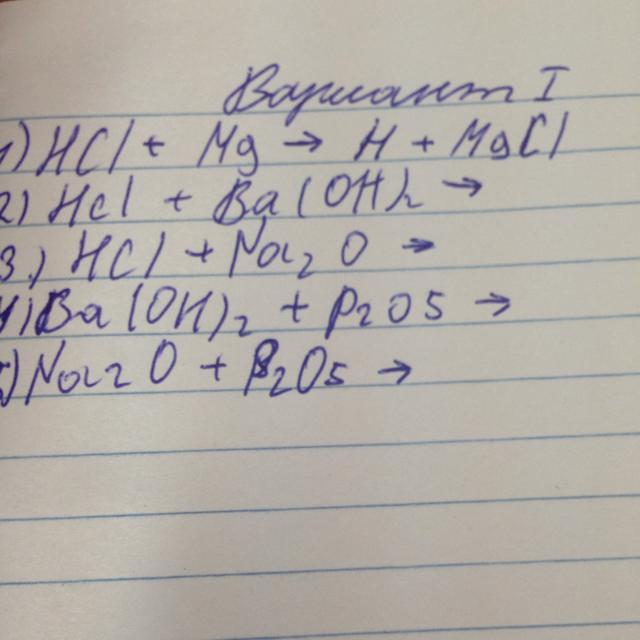 Вариант I
1) HCl + Mg → H + MgCl
2) HCl + Ba(OH)2 →
3.) HCl + Na2O →
4) Ba(OH)2 + P2O5 →
5) Na2O + P2O5 →